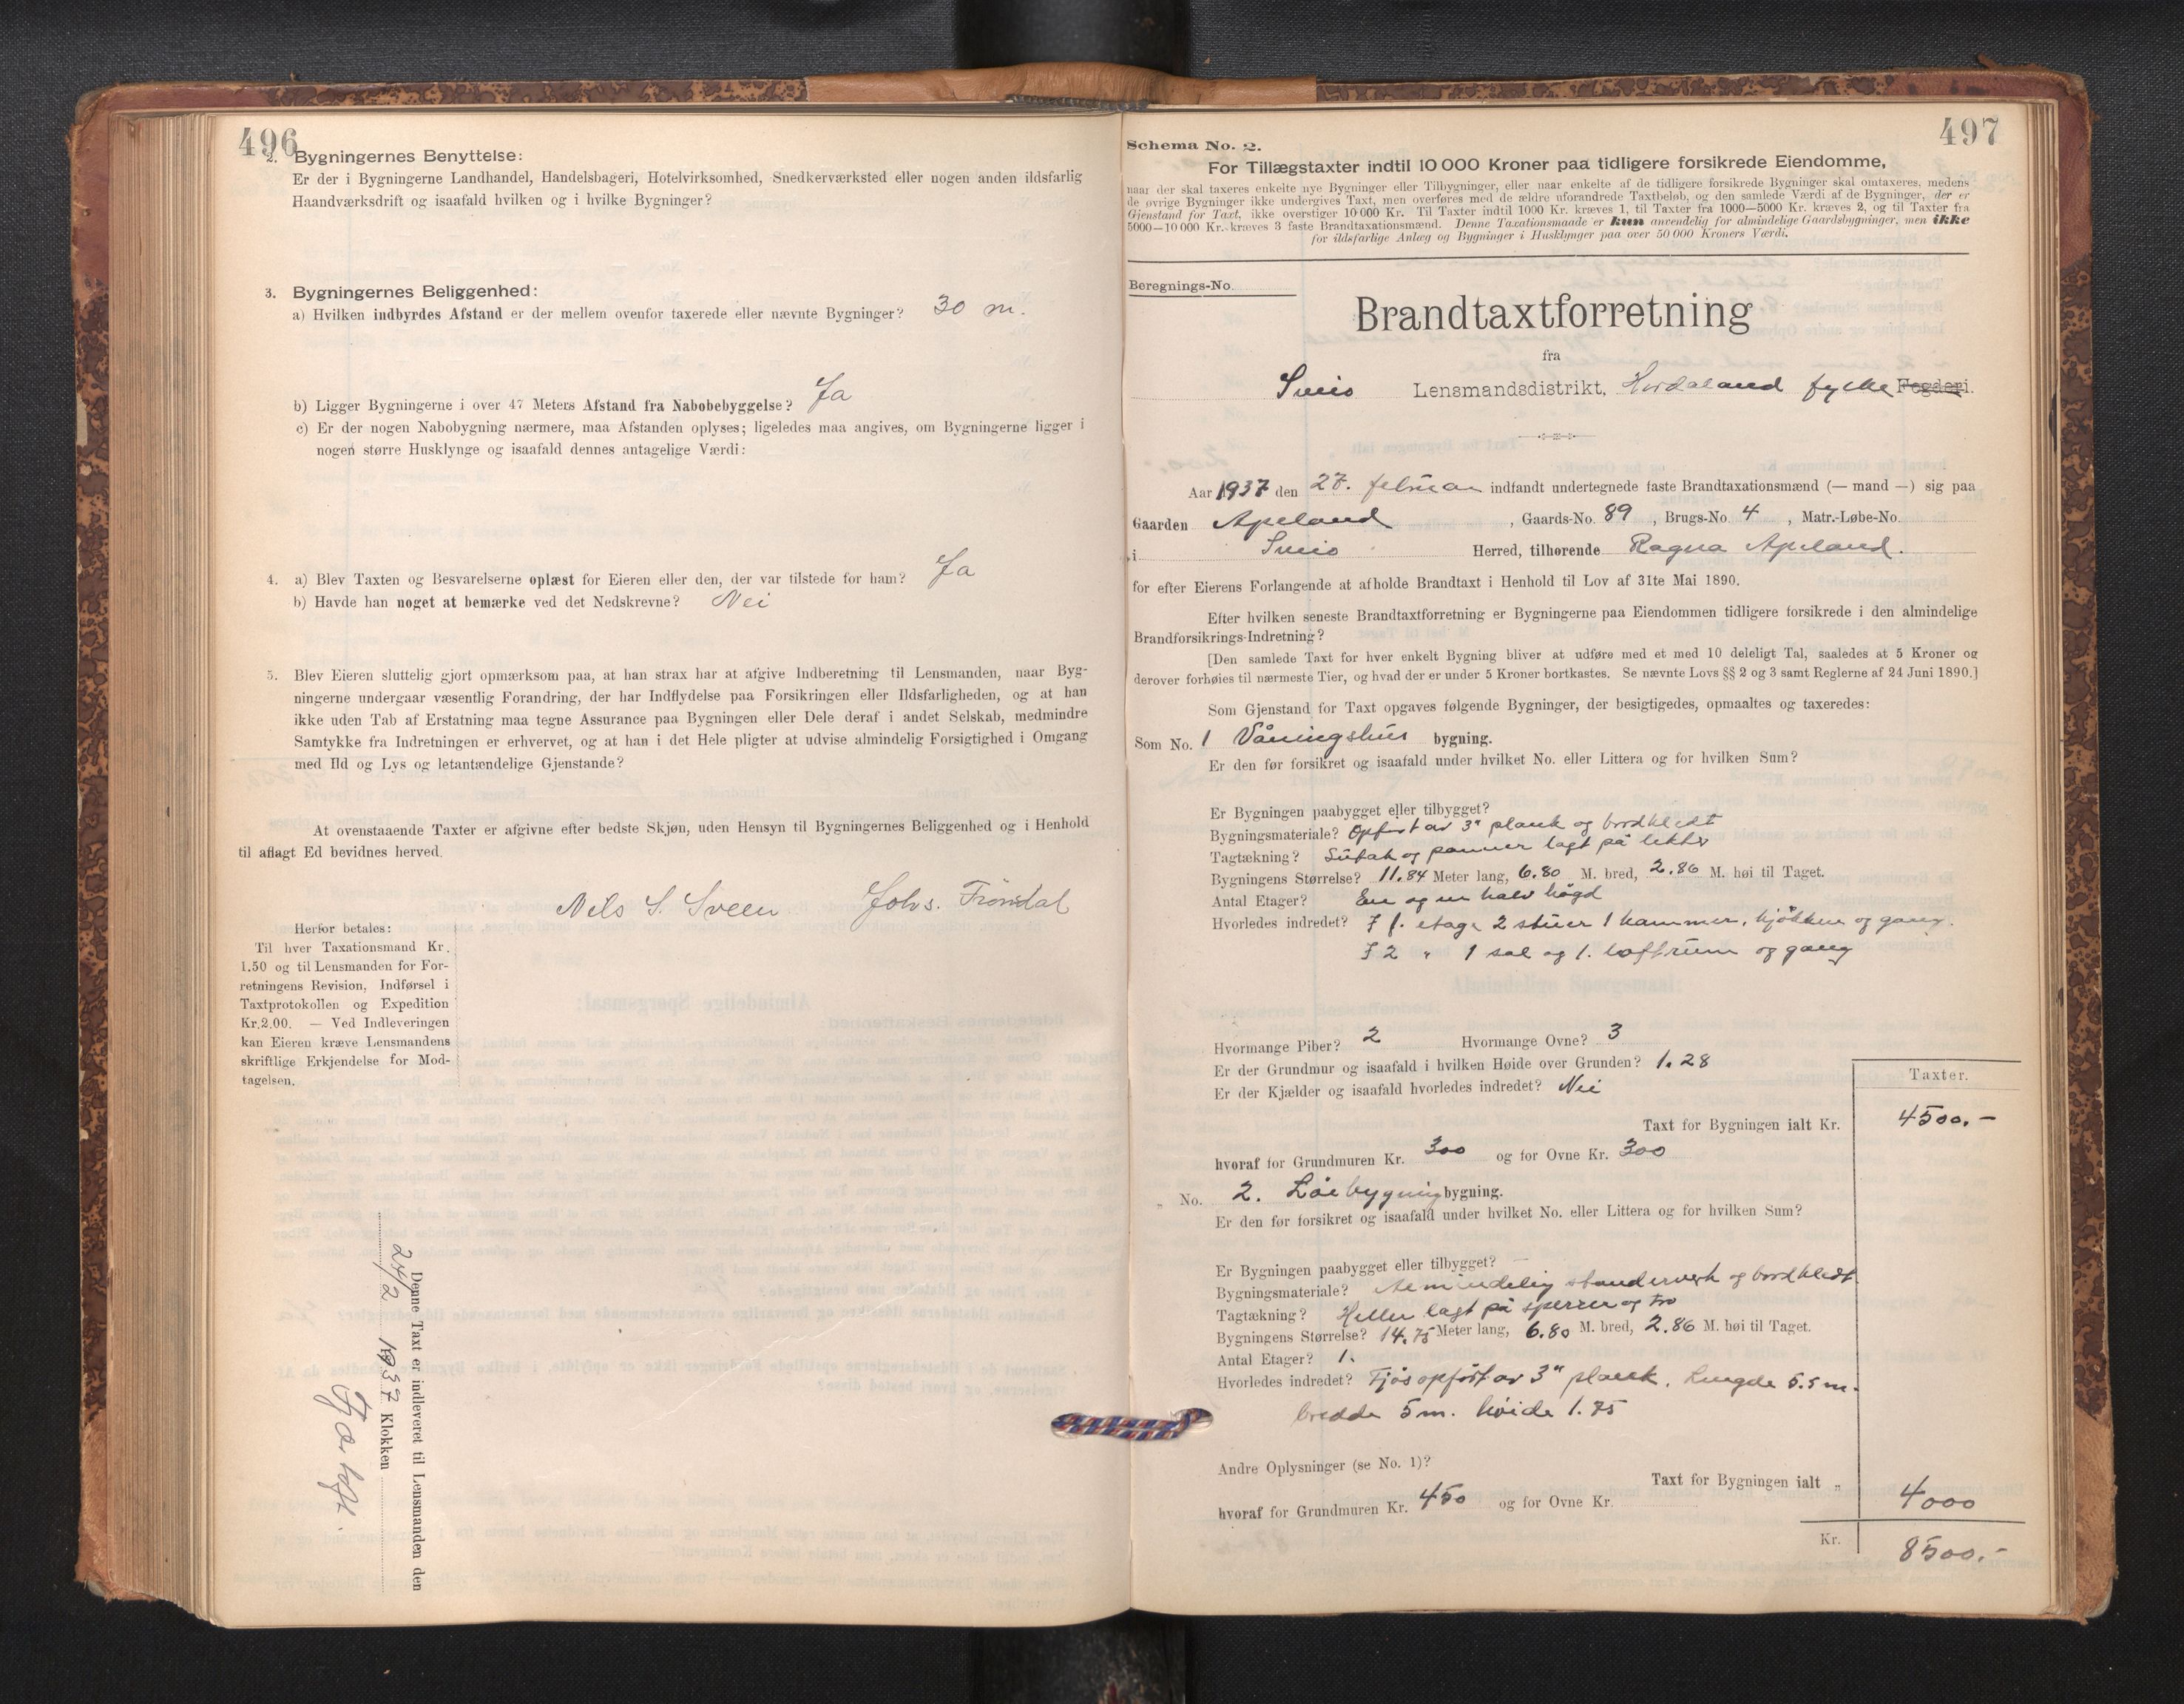 496
2. Bygningernes Benyttelse:
Er der i Bygningerne Landhandel, Handelsbageri, Hotelvirksomhed, Snedkerværksted eller nogen anden ildsfarlig
Haandværksdrift og isaafald hvilken og i hvilke Bygninger?
3. Bygningernes Beliggenhed:
a) Hvilken indbyrdes Afstand er der mellem ovenfor taxerede eller nævnte Bygninger? 30 m.
b) Ligger Bygningerne i over 47 Meters Afstand fra Nabobebyggelse? Ja
c) Er der nogen Nabobygning nærmere, maa Afstanden oplyses; ligeledes maa angives, om Bygningerne ligger i
nogen større Husklynge og isaafald dennes antagelige Værdi:
4. a) Blev Taxten og Besvarelserne oplæst for Eieren eller den, der var tilstede for ham? Ja
b) Havde han noget at bemærke ved det Nedskrevne? Nei
5. Blev Eieren sluttelig gjort opmærksom paa, at han strax har at afgive Indberetning til Lensmanden, naar Byg-
ningerne undergaar væsentlig Forandring, der har Indflydelse paa Forsikringen eller Ildsfarligheden, og at han
ikke uden Tab af Erstatning maa tegne Assurance paa Bygningen eller Dele deraf i andet Selskab, medmindre
Samtykke fra Indretningen er erhvervet, og at han i det Hele pligter at udvise almindelig Forsigtighed i Omgang
med Ild og Lys og letantændelige Gjenstande?
At ovenstaaende Taxter er afgivne efter bedste Skjøn, uden Hensyn til Bygningernes Beliggenhed og i Henhold
til aflagt Ed bevidnes herved.
Nels S. Sveen Johs. Tröndal
Herfor betales:
Til hver Taxationsmand Kr.
1.50 og til Lensmanden for For-
retningens Revision, Indførsel i
Taxtprotokollen og Expedition
Kr. 2.00. — Ved Indleveringen
kan Eieren kræve Lensmandens
skriftlige Erkjendelse for Mod-
tagelsen.
Denne Taxt er indleveret til Lensmanden den
24/2 1937 Klokken
497
Schema No. 2.
For Tillægstaxter indtil 10 000 Kroner paa tidligere forsikrede Eiendomme,
naar der skal taxeres enkelte nye Bygninger eller Tilbygninger, eller naar enkelte af de tidligere forsikrede Bygninger skal omtaxeres, medens
de øvrige Bygninger ikke undergives Taxt, men overføres med de ældre uforandrede Taxtbeløb, og den samlede Værdi af de Bygninger, der er
Gjenstand for Taxt, ikke overstiger 10 000 Kr. Til Taxter indtil 1000 Kr. kræves 1, til Taxter fra 1000—5000 Kr. kræves 2, og til Taxter fra
5000—10 000 Kr. kræves 3 faste Brandtaxationsmænd. Denne Taxationsmaade er kun anvendelig for almindelige Gaardsbygninger, men ikke
for ildsfarlige Anlæg og Bygninger i Husklynger paa over 50 000 Kroners Værdi.
Beregnings-No.
Brandtaxtforretning
fra
Sveio Lensmandsdistrikt, Hordaland fylke Fogderi.
Aar 1937 den 27. februar indfandt undertegnede faste Brandtaxationsmænd (— mand —) sig paa
Gaarden Apeland , Gaards-No. 89 , Brugs-No. 4 , Matr.-Løbe-No.
i Sveio Herred, tilhørende Ragna Apeland.
for efter Eierens Forlangende at afholde Brandtaxt i Henhold til Lov af 31te Mai 1890.
Efter hvilken seneste Brandtaxtforretning er Bygningerne paa Eiendommen tidligere forsikrede i den almindelige
Brandforsikrings-Indretning?
[Den samlede Taxt for hver enkelt Bygning bliver at udføre med et med 10 deleligt Tal, saaledes at 5 Kroner og
derover forhøies til nærmeste Tier, og hvad der er under 5 Kroner bortkastes. Se nævnte Lovs §§ 2 og 3 samt Reglerne af 24 Juni 1890.]
Som Gjenstand for Taxt opgaves følgende Bygninger, der besigtigedes, opmaaltes og taxeredes:
Som No. 1 Våningshus bygning.
Er den før forsikret og isaafald under hvilket No. eller Littera og for hvilken Sum?
Er Bygningen paabygget eller tilbygget?
Bygningsmateriale? Opført av 3" plank og bordkledt
Tagtækning? Sutak og panner lagt på lekter
Bygningens Størrelse? 11.84 Meter lang, 6.80 M. bred, 2.86 M. høi til Taget.
Antal Etager? Een og en halv høgd
Hvorledes indredet? I 1. etage 2 stuer 1 kammer, kjøkken og gang.
I 2 " 1 sal og 1. loftrum og gang
Hvormange Piber? 2 Hvormange Ovne? 3
Er der Grundmur og isaafald i hvilken Høide over Grunden? 1.28
Er der Kjælder og isaafald hvorledes indredet? Nei
Taxter.
Taxt for Bygningen ialt Kr. 4500.-
hvoraf for Grundmuren Kr. 300 og for Ovne Kr. 300
" No. 2. Løebygning bygning.
Er den før forsikret og isaafald under hvilket No. eller Littera og for hvilken Sum?
Er Bygningen paabygget eller tilbygget? —
Bygningsmateriale? Almindelig standerverk og bordkledt
Tagtækning? Heller lagt på sperrer og tro
Bygningens Størrelse? 14.75 Meter lang, 6.80 M. bred, 2.86 M. høi til Taget.
Antal Etager? 1.
Hvorledes indredet? Fjøs opført av 3" plank. Lengde 5.5 m.
bredde 5 m. høide 1.75
Andre Oplysninger (se No. 1)?
Taxt for Bygningen ialt " 4000
hvoraf for Grundmuren Kr. 450 og for Ovne Kr.
Kr. 8500.-